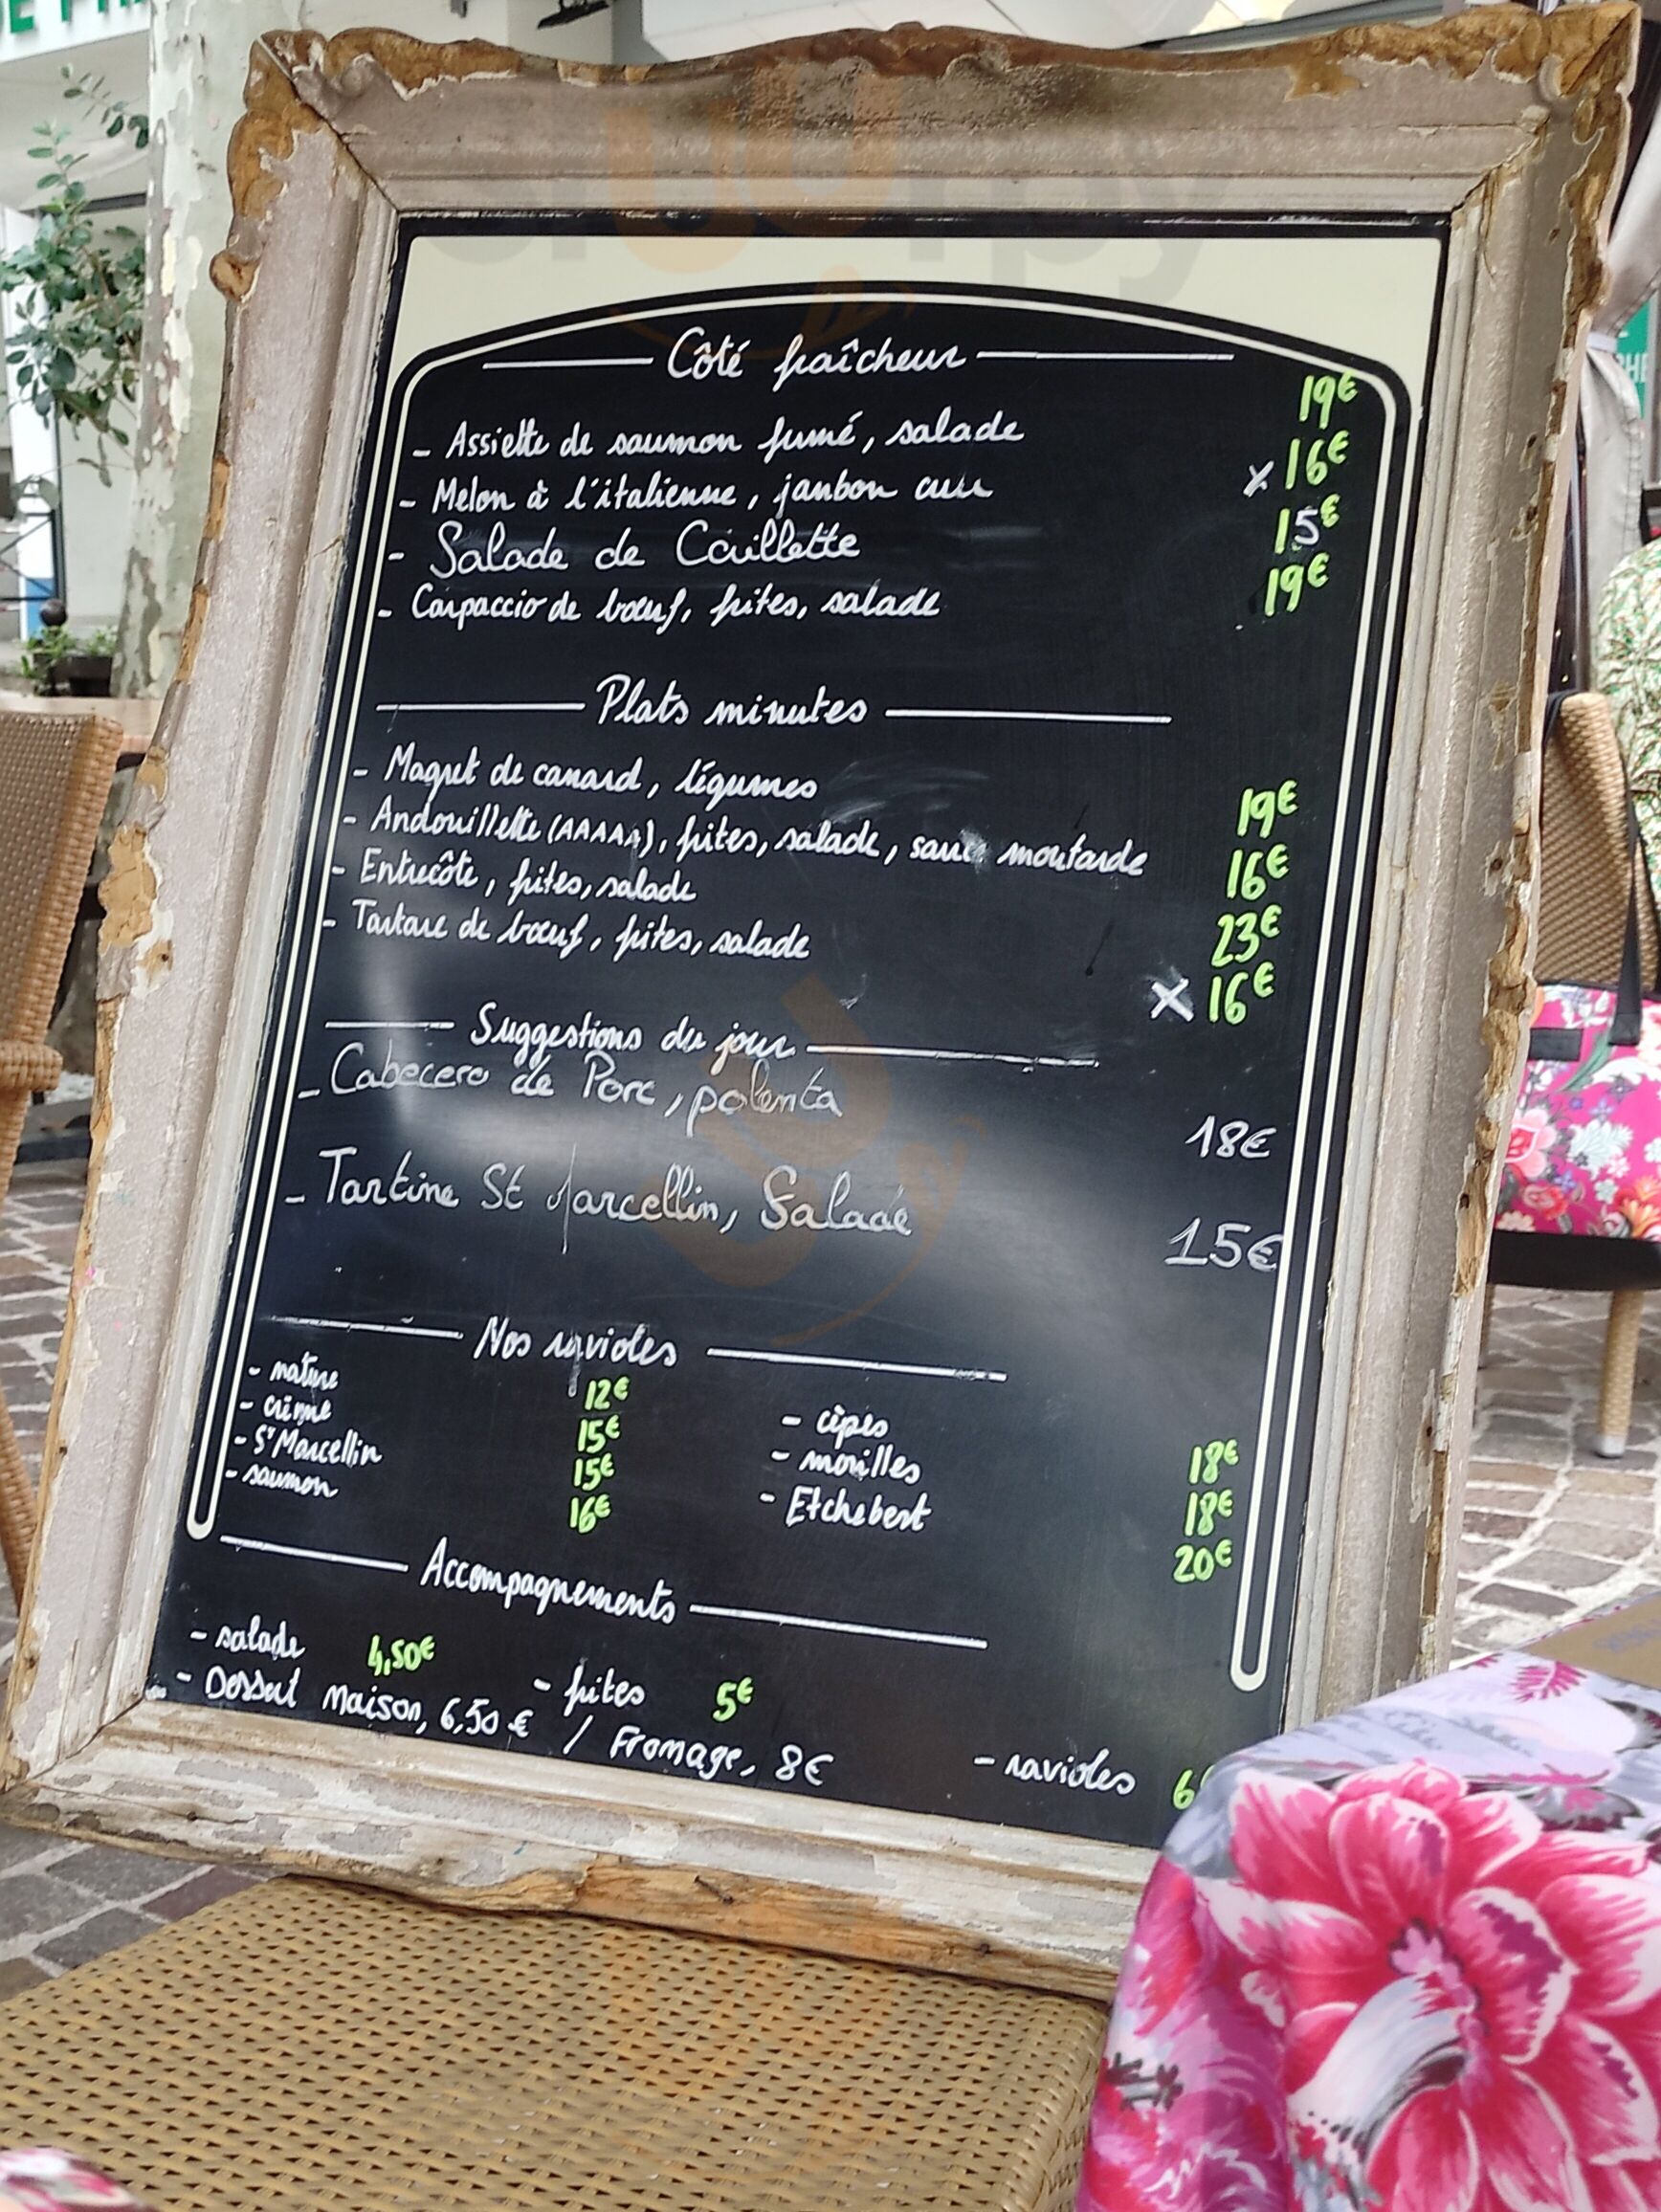 Côté fraîcheur
- Assiette de saumon fumé, salade 19€
- Melon à l'italienne, jambon cru x 16€
- Salade de Caillette 15€
- Carpaccio de bœuf, frites, salade 19€
Plats minutes
- Magret de canard, légumes 19€
- Andouillette (AAAAA), frites, salade, sauce moutarde 16€
- Entrecôte, frites, salade 23€
- Tartare de bœuf, frites, salade x 16€
Suggestions du jour
- Cabecero de Porc, polenta 18€
- Tartine St Marcellin, Salade 15€
Nos ravioles
- nature 12€ - cèpes 18€
- crème 15€ - morilles 18€
- St Marcellin 15€ - Etchebert 20€
- saumon 16€
Accompagnements
- salade 4,50€ - frites 5€ - ravioles 6
- Dessert Maison, 6,50€ / Fromage, 8€